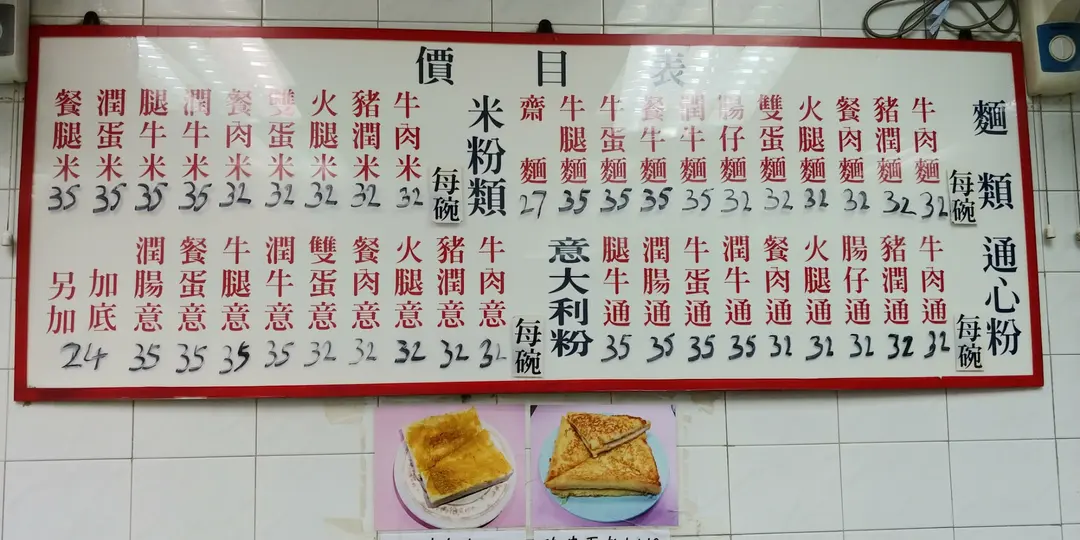 價目表
麵類
每碗
牛肉麵 32
豬潤麵 32
餐肉麵 32
火腿麵 32
雙蛋麵 32
腸仔麵 32
潤牛麵 35
餐牛麵 35
牛蛋麵 35
牛腿麵 35
齋麵 27
米粉類
每碗
牛肉米 32
豬潤米 32
火腿米 32
雙蛋米 32
餐肉米 32
潤牛米 35
腿牛米 35
潤蛋米 35
餐腿米 35
通心粉
每碗
牛肉通 32
豬潤通 32
腸仔通 32
火腿通 32
餐肉通 32
潤牛通 35
牛蛋通 35
潤腸通 35
腿牛通 35
意大利粉
每碗
牛肉意 32
豬潤意 32
火腿意 32
餐肉意 32
雙蛋意 32
潤牛意 35
牛腿意 35
餐蛋意 35
潤腸意 35
加底
另加
24